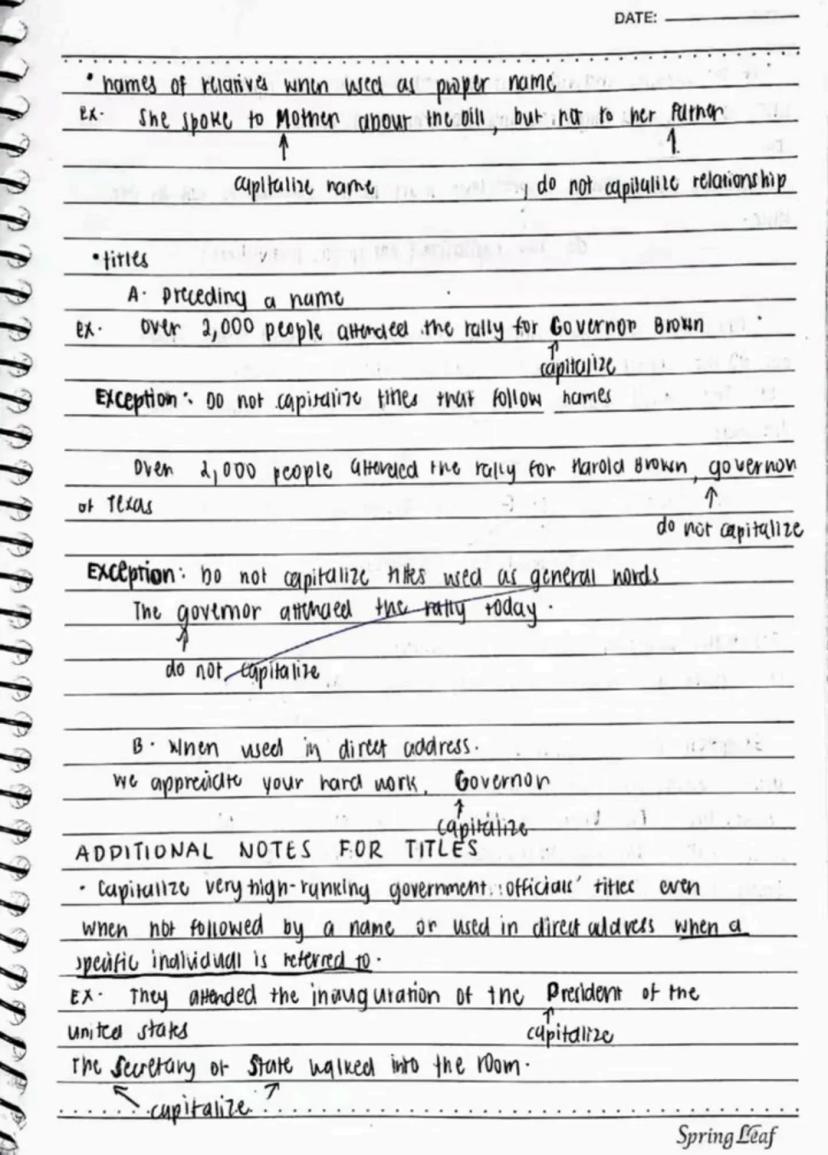 DATE:
• names of relatives when used as proper name
ex. She spoke to Mother about the bill, but not to her father
capitalize name , do not capitalize relationship
• titles
A. preceding a name
ex. Over 2,000 people attended the rally for Governor Brown
capitalize
Exception: Do not capitalize titles that follow names
Over 2,000 people attended the rally for Harold Brown, governor
of Texas
do not capitalize
Exception: Do not capitalize titles used as general words
The governor attended the rally today.
do not capitalize
B. When used in direct address.
We appreciate your hard work, Governor
capitalize
ADDITIONAL NOTES FOR TITLES
• Capitalize very high-runking government officials' titles even
when not followed by a name or used in direct address when a
specific individual is referred to.
EX. They attended the inauguration of the President of the
united states
capitalize
The Secretary of State walked into the room.
capitalize
Spring Leaf